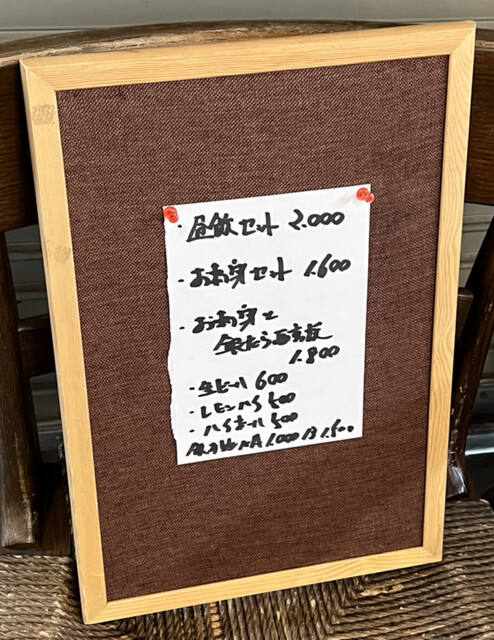 ・昼飲セット 2.000
・お刺身セット 1.600
・お刺身と
銀だら西京焼
1.800
・生ビール 600
・レモンハイ 500
・ハイボール 500
1.000 1.500